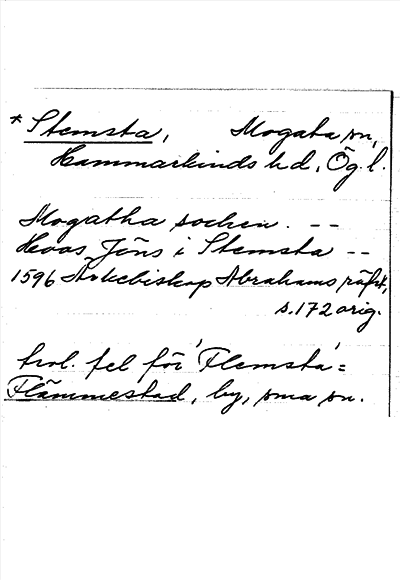 * Stemsta, Mogata sn,
Hammarkinds hd, Ög.l.
Mogatha sochen. --
Hoos Jöns i Stemsta --
1596 Ärkebiskop Abrahams räfst,
s.172 orig.
trol. fel för 'Flemsta' =
Flämmestad, by, sma sn.